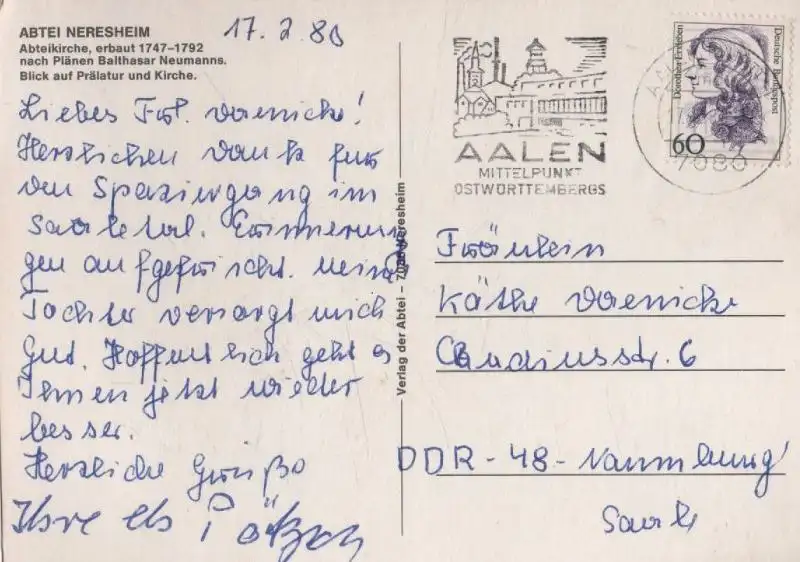 ABTEI NERESHEIM
Abteikirche, erbaut 1747–1792
nach Plänen Balthasar Neumanns.
Blick auf Prälatur und Kirche.
17. 2. 88
Liebes Frl. Vaenicke!
Herzlichen Dank für
den Spaziergang im
Saaletal. Erinnerun
gen aufgefrischt. Meine
Tochter versorgt mich
gut. Hoffentlich geht es
Ihnen jetzt wieder
besser.
Herzliche Grüße
Ihre
Verlag der Abtei – 7086 Neresheim
AALEN
MITTELPUNKT
OSTWÜRTTEMBERGS
Dorothea Erxleben
Deutsche Bundespost
60
7080
Fräulein
Käthe Vaenicke
Claudiusstr. 6
DDR - 48 - Naumburg
Saale